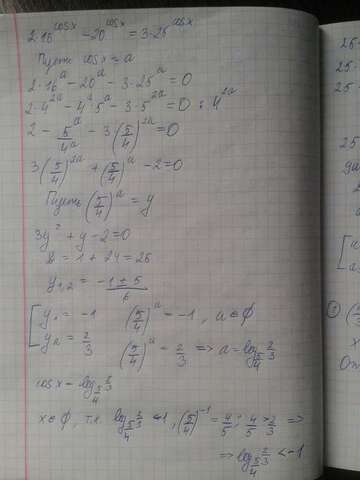 2·16^cosx − 20^cosx = 3·25^cosx
Пусть cosx = a
2·16^a − 20^a − 3·25^a = 0
2·4^2a − 4^a·5^a − 3·5^2a = 0 : 4^2a
2 − 5^a/4^a − 3(5/4)^2a = 0
3(5/4)^2a + (5/4)^a − 2 = 0
Пусть (5/4)^a = y
3y² + y − 2 = 0
D = 1 + 24 = 25
y1,2 = (−1 ± 5)/6
[ y1 = −1 (5/4)^a = −1, a ∈ ∅
y2 = 2/3 (5/4)^a = 2/3 => a = log_5/4 2/3
cosx = log_5/4 2/3
x ∈ ∅, т.к. log_5/4 2/3 < −1, (5/4)^−1 = 4/5; 4/5 > 2/3 =>
=> log_5/4 2/3 < −1
25
25
25